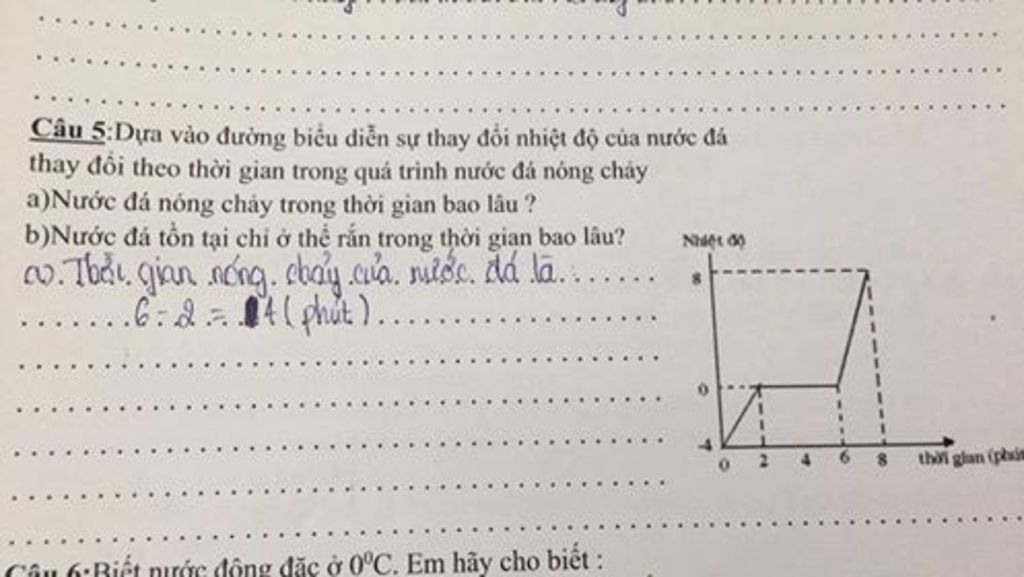 Câu 5:Dựa vào đường biểu diễn sự thay đổi nhiệt độ của nước đá
thay đổi theo thời gian trong quá trình nước đá nóng chảy
a)Nước đá nóng chảy trong thời gian bao lâu ?
b)Nước đá tồn tại chỉ ở thể rắn trong thời gian bao lâu?
a). Thời gian nóng chảy của nước đá là :
6 - 2 = 4 ( phút )
Nhiệt độ
8
0
-4
0 2 4 6 8 thời gian (phút
Câu 6:Biết nước đông đặc ở 0⁰C. Em hãy cho biết :